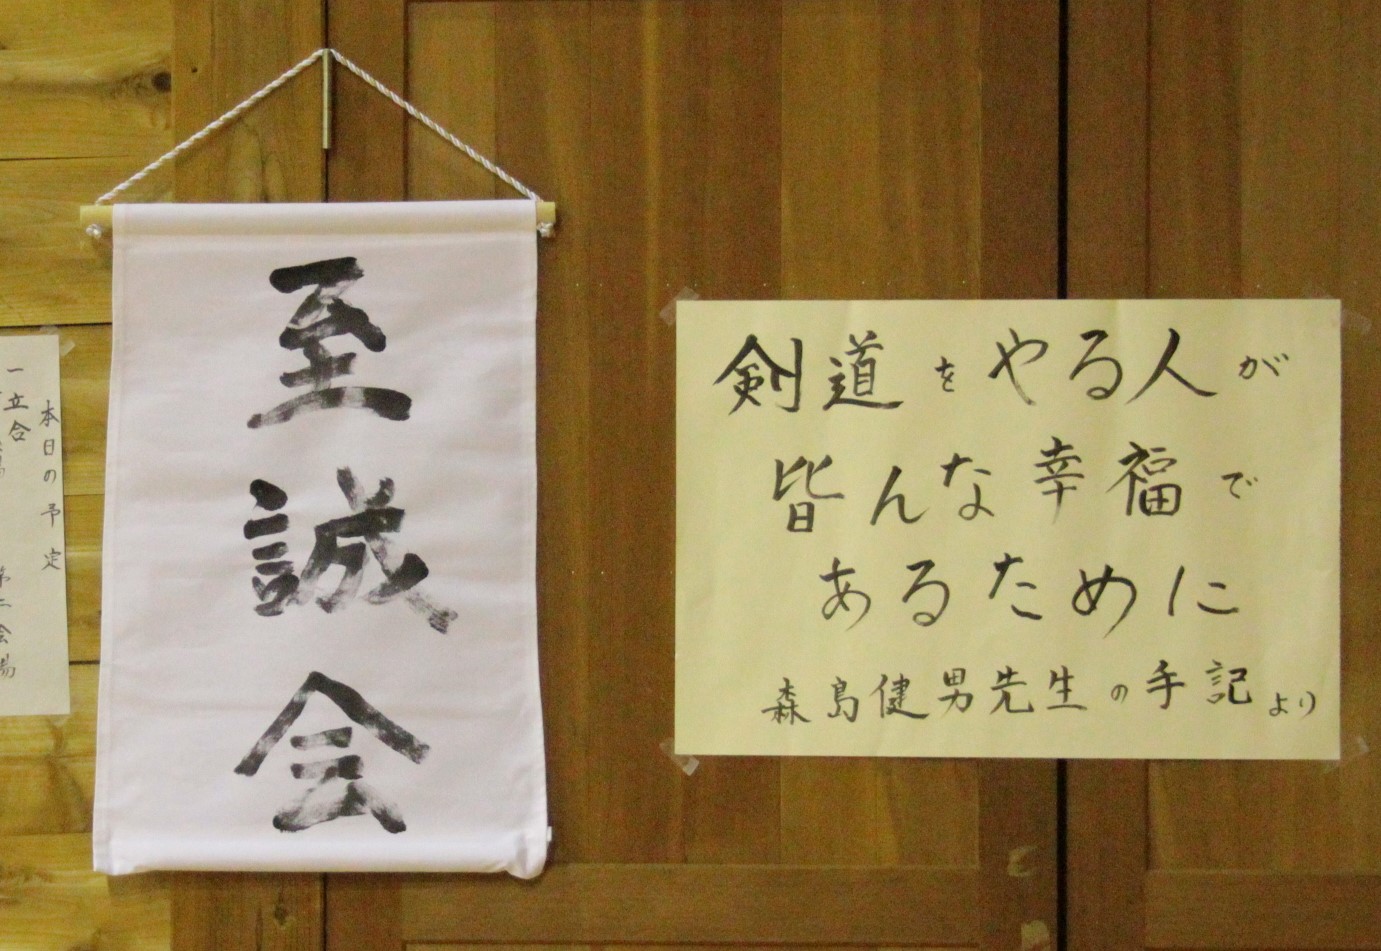 至誠会
剣道をやる人が
皆んな幸福で
あるために
森島健男先生の手記より
本日の予定
一立合
第二会場